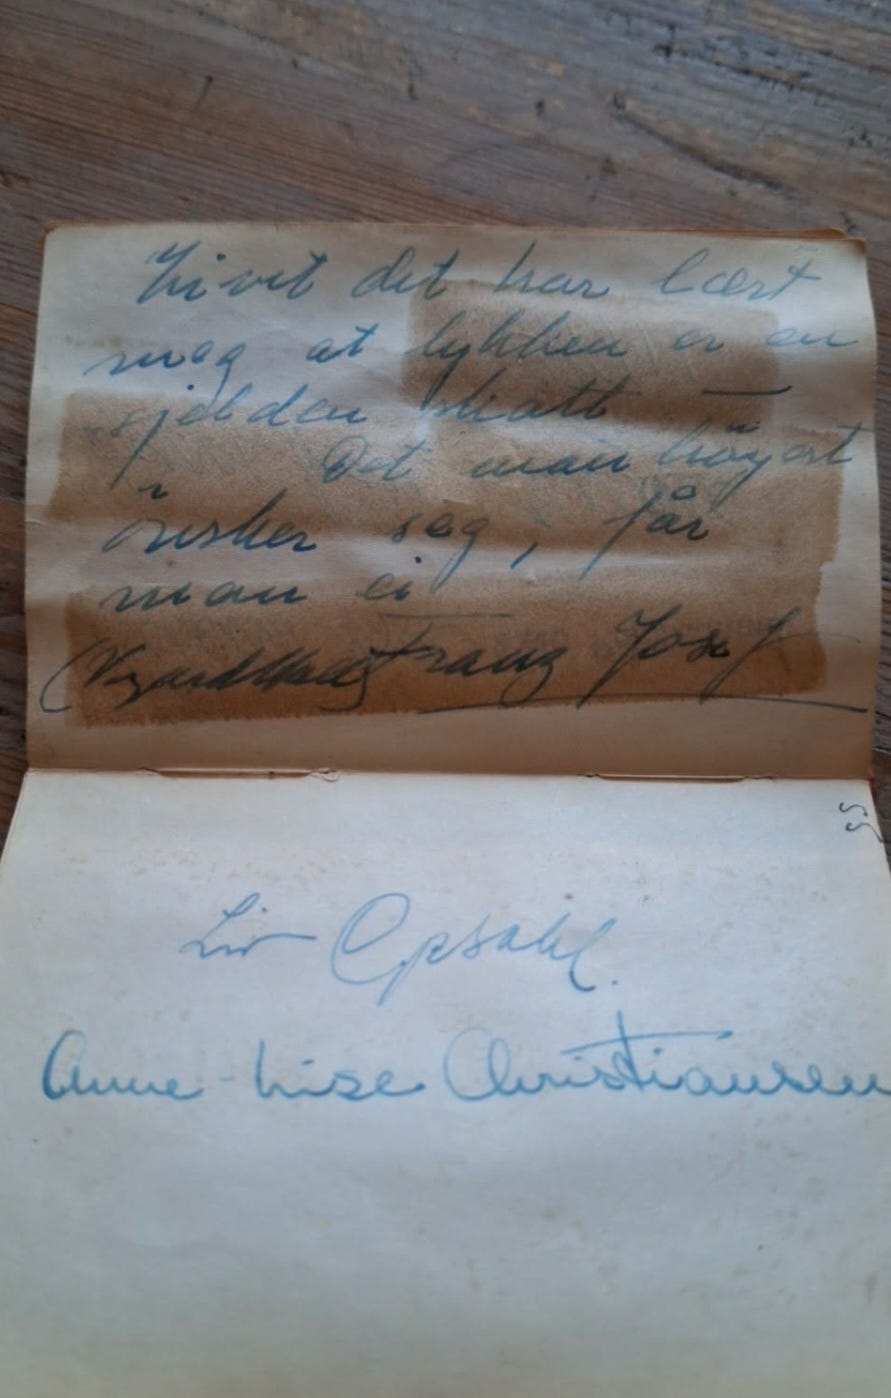 Livet det har lært
meg at lykken er en
sjelden skatt —
Det man höyest
önsker seg, får
man ei
Franz Josef
Liv Opsahl.
Anne-Lise Christiansen